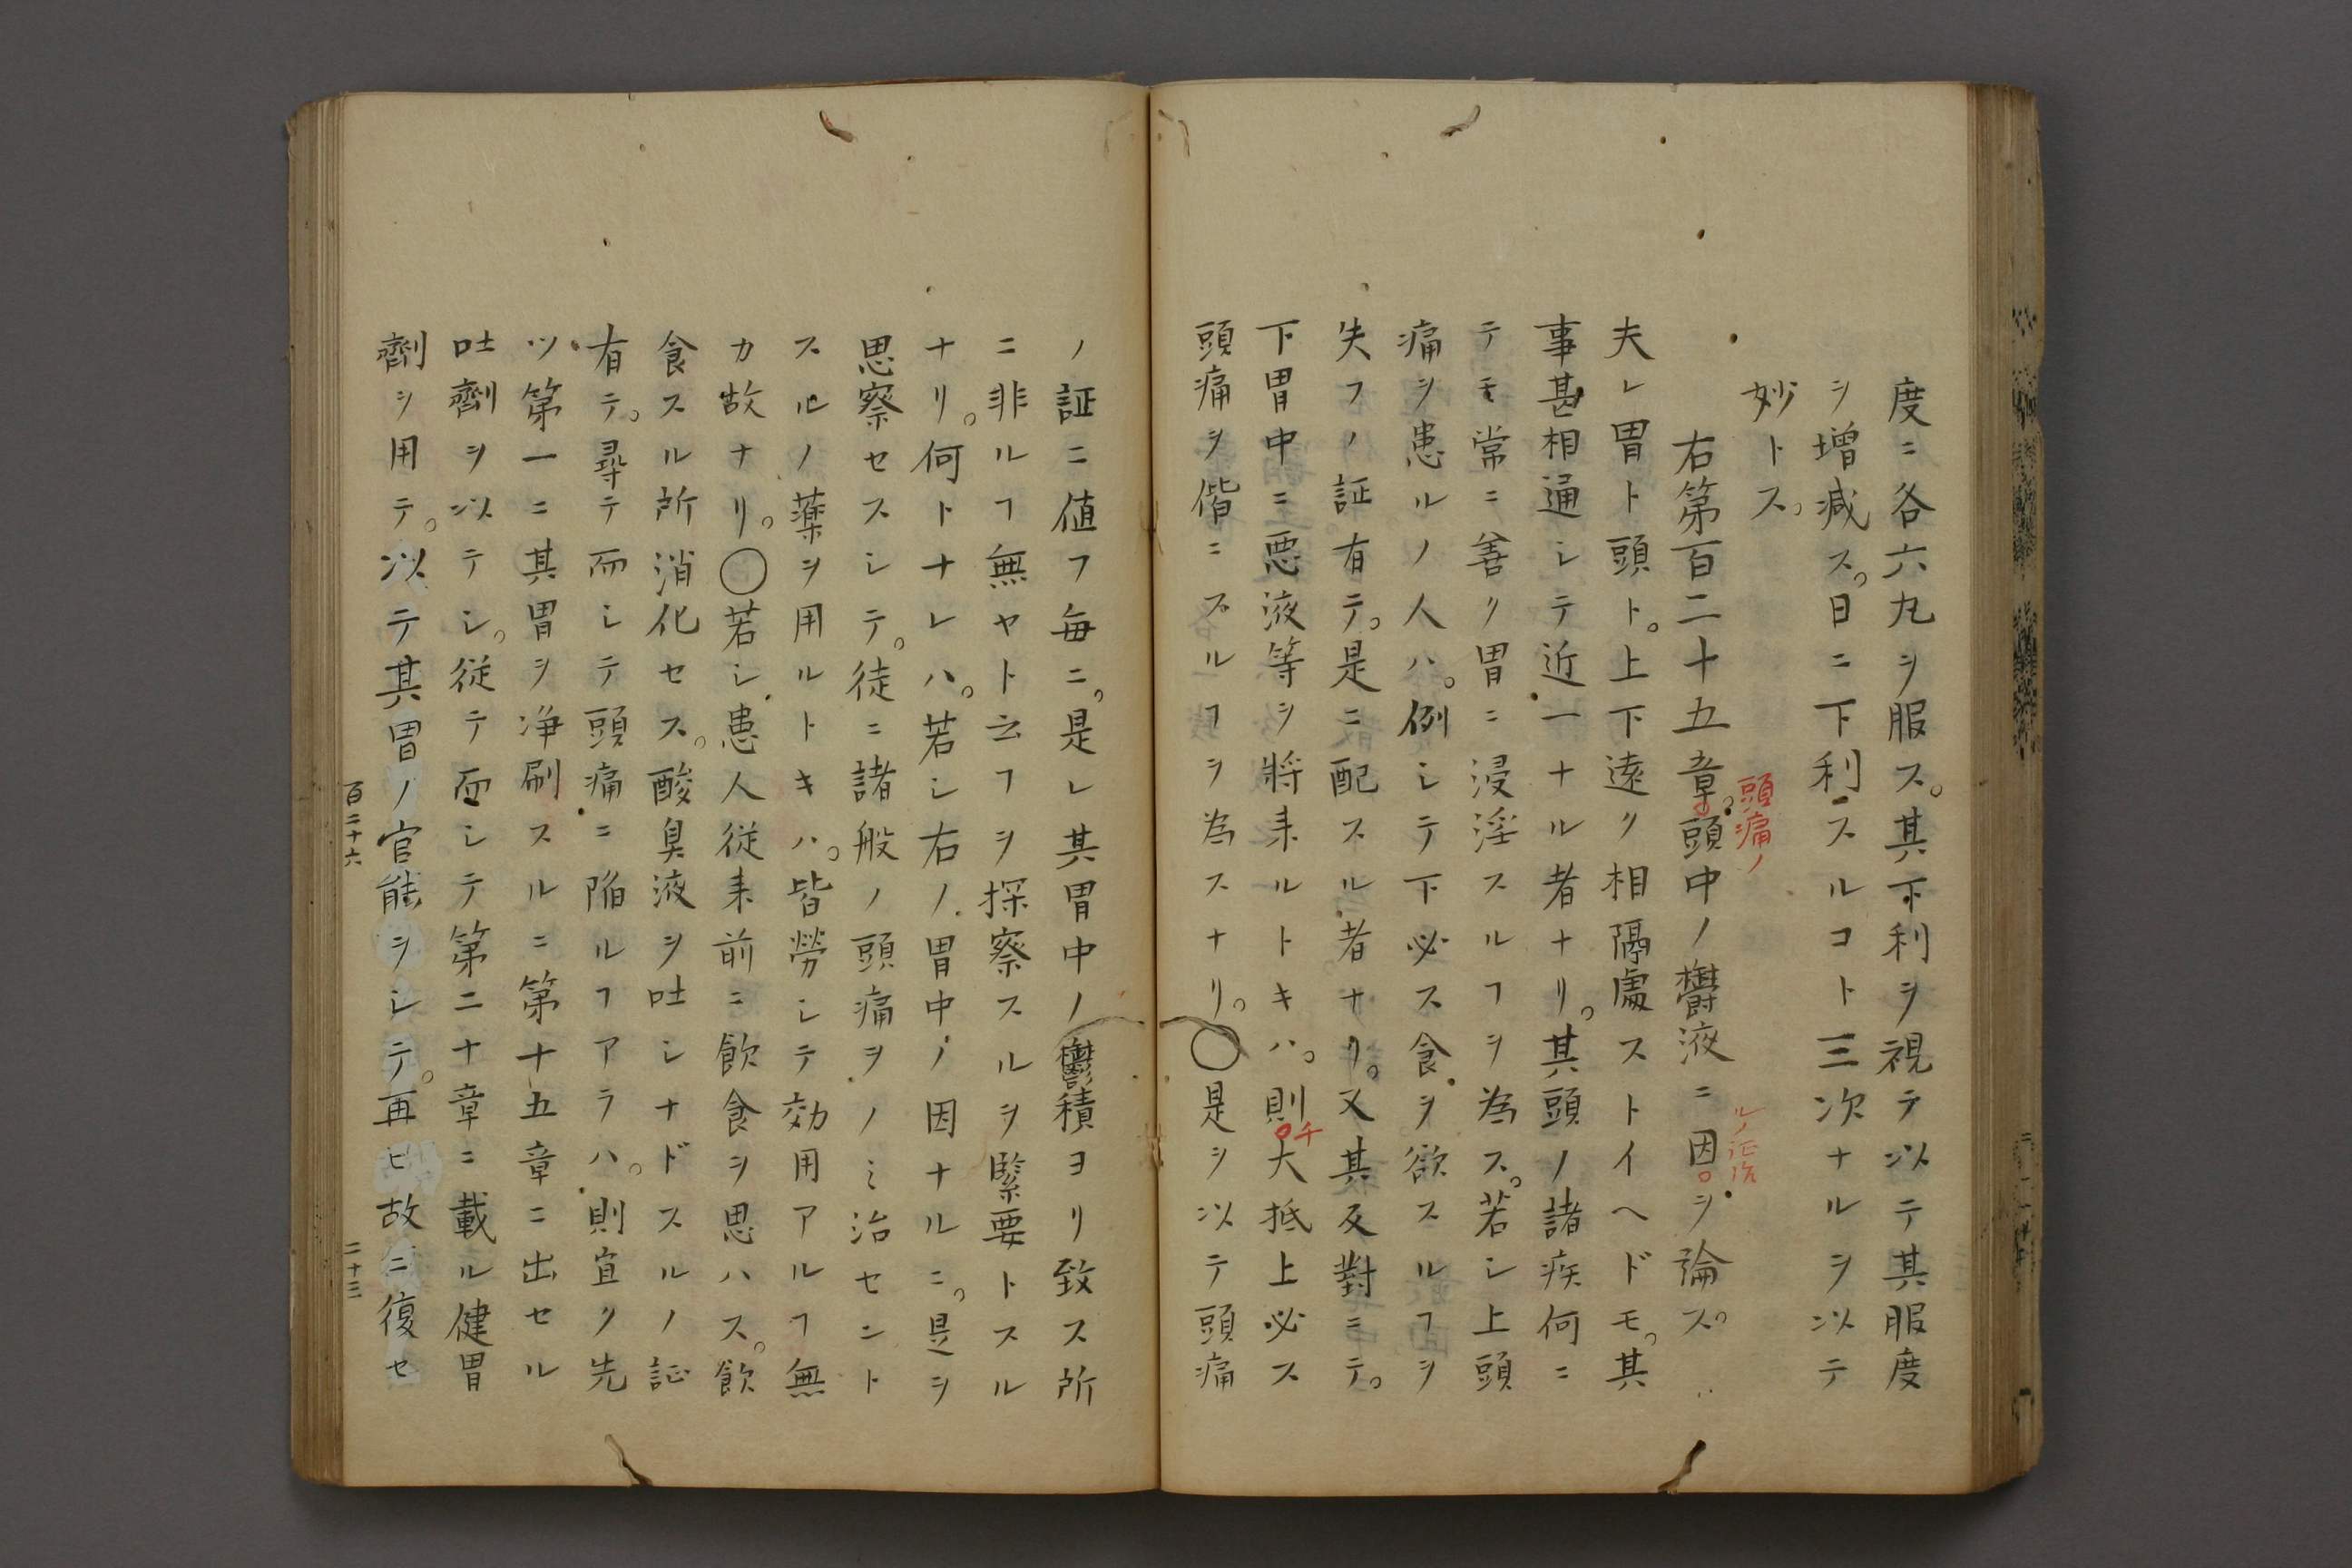 度ニ各六丸ヲ服ス。其下利ヲ視テ以テ其服度
ヲ増減ス。日ニ下利スルコト三次ナルヲ以テ
妙トス。
頭痛ノ
右第百二十五章。頭中ノ欝液ニ因ヲ論ス。
夫レ胃ト頭ト。上下遠ク相隔處ストイヘドモ。其
事甚相通シテ近一ナル者ナリ。其頭ノ諸疾何ニ
テモ常ニ善ク胃ニ浸淫スルヿヲ為ス。若シ上頭
痛ヲ患ルノ人ハ。例シテ下必ス食ヲ欲スルヿヲ
失フノ証有テ。是ニ配スル者ナリ。又其反對ニテ。
下胃中ニ悪液等ヲ將来ルトキハ。則チ大抵上必ス
頭痛ヲ偕ニスルヿヲ為スナリ。〇是ヲ以テ頭痛
ノ証ニ値フ毎ニ。是レ其胃中ノ鬱積ヨリ致ス所
ニ非ルヿ無ヤト云フヲ探察スルヲ緊要トスル
ナリ。何トナレハ。若シ右ノ胃中ノ因ナルニ。是ヲ
思察セスシテ。徒ニ諸般ノ頭痛ヲノミ治セント
スルノ薬ヲ用ルトキハ。皆勞シテ効用アルヿ無
カ故ナリ。〇若シ患人従来前ニ飲食ヲ思ハス。飲
食スル所消化セス。酸臭液ヲ吐シナドスルノ証
有テ。尋テ而シテ頭痛ニ陥ルヿアラハ。則宜ク先
ツ第一ニ其胃ヲ浄刷スルニ第十五章ニ出セル
吐劑ヲ以テシ。従テ而シテ第二十章ニ載ル健胃
劑ヲ用テ。以テ其胃ノ官能ヲシテ。再ヒ故ニ復セ
百二十六
二十三